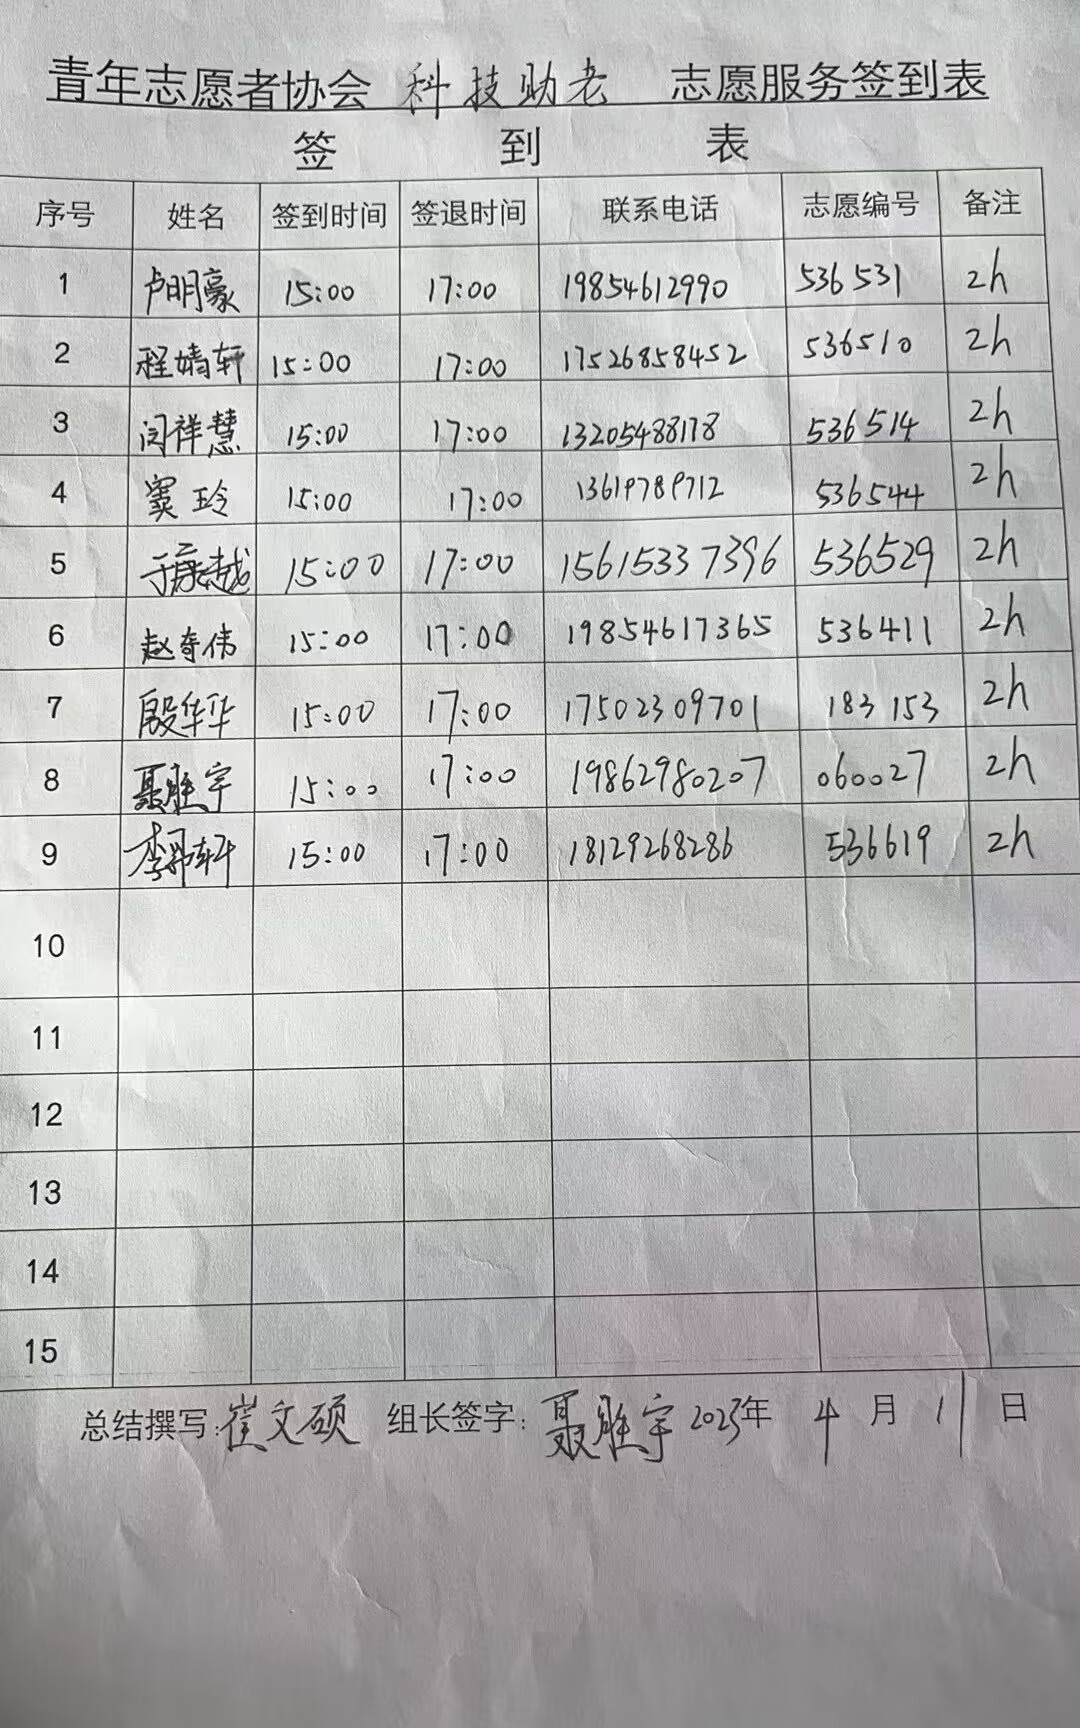 青年志愿者协会 科技助老 志愿服务签到表
签 到 表
序号 姓名 签到时间 签退时间 联系电话 志愿编号 备注
1 卢明豪 15:00 17:00 19854612990 536531 2h
2 程婧轩 15:00 17:00 17526858452 536510 2h
3 闫祥慧 15:00 17:00 13205488178 536514 2h
4 窦玲 15:00 17:00 13619789712 536544 2h
5 于康越 15:00 17:00 15615337396 536529 2h
6 赵夺伟 15:00 17:00 19854617365 536411 2h
7 殷华华 15:00 17:00 17502309701 183153 2h
8 聂胜宇 15:00 17:00 19862980207 060027 2h
9 李弟轩 15:00 17:00 18129268286 536619 2h
10
11
12
13
14
15
总结撰写:崔文硕 组长签字:聂胜宇 2025年 4月 11日